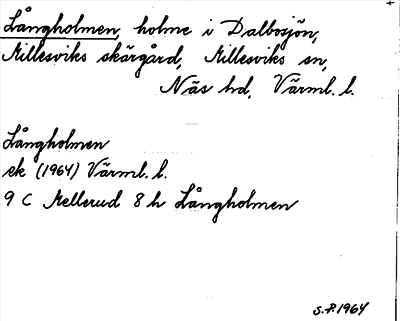 Långholmen, holme i Dalbosjön,
Millesviks skärgård, Millesviks sn,
Näs hd, Värml. l.
Långholmen
ek (1964) Värml. l.
9 C Mellerud 8 h Långholmen
S.P. 1964